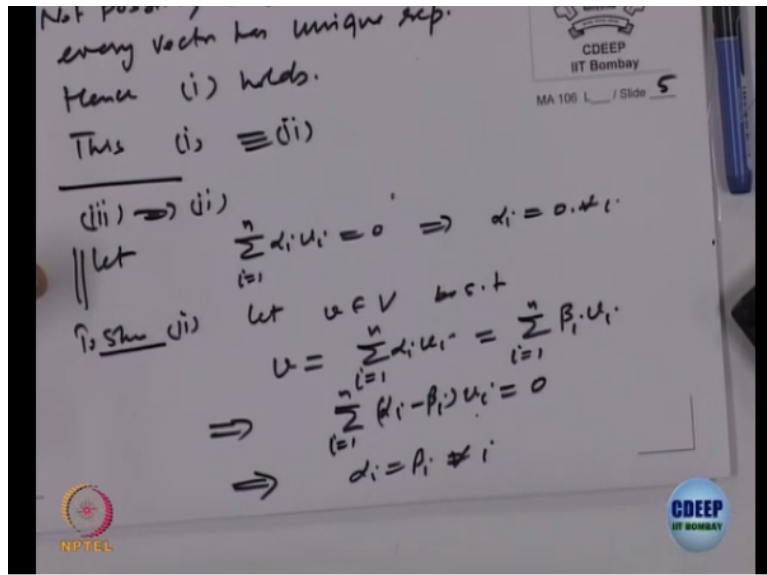 Not
every vector has unique rep.
Hence (i) holds.
This (i) ≡ (ii)
CDEEP
IIT Bombay
MA 106 L__ / Slide 5
(iii) ⇒ (ii)
Let ∑_{i=1}^{n} α_i u_i = 0 ⇒ α_i = 0 ∀ i
To Show (ii) Let u ∈ V be s.t
u = ∑_{i=1}^{n} α_i u_i = ∑_{i=1}^{n} β_i u_i
⇒ ∑_{i=1}^{n} (α_i - β_i) u_i = 0
⇒ α_i = β_i ∀ i
NPTEL
CDEEP
IIT BOMBAY